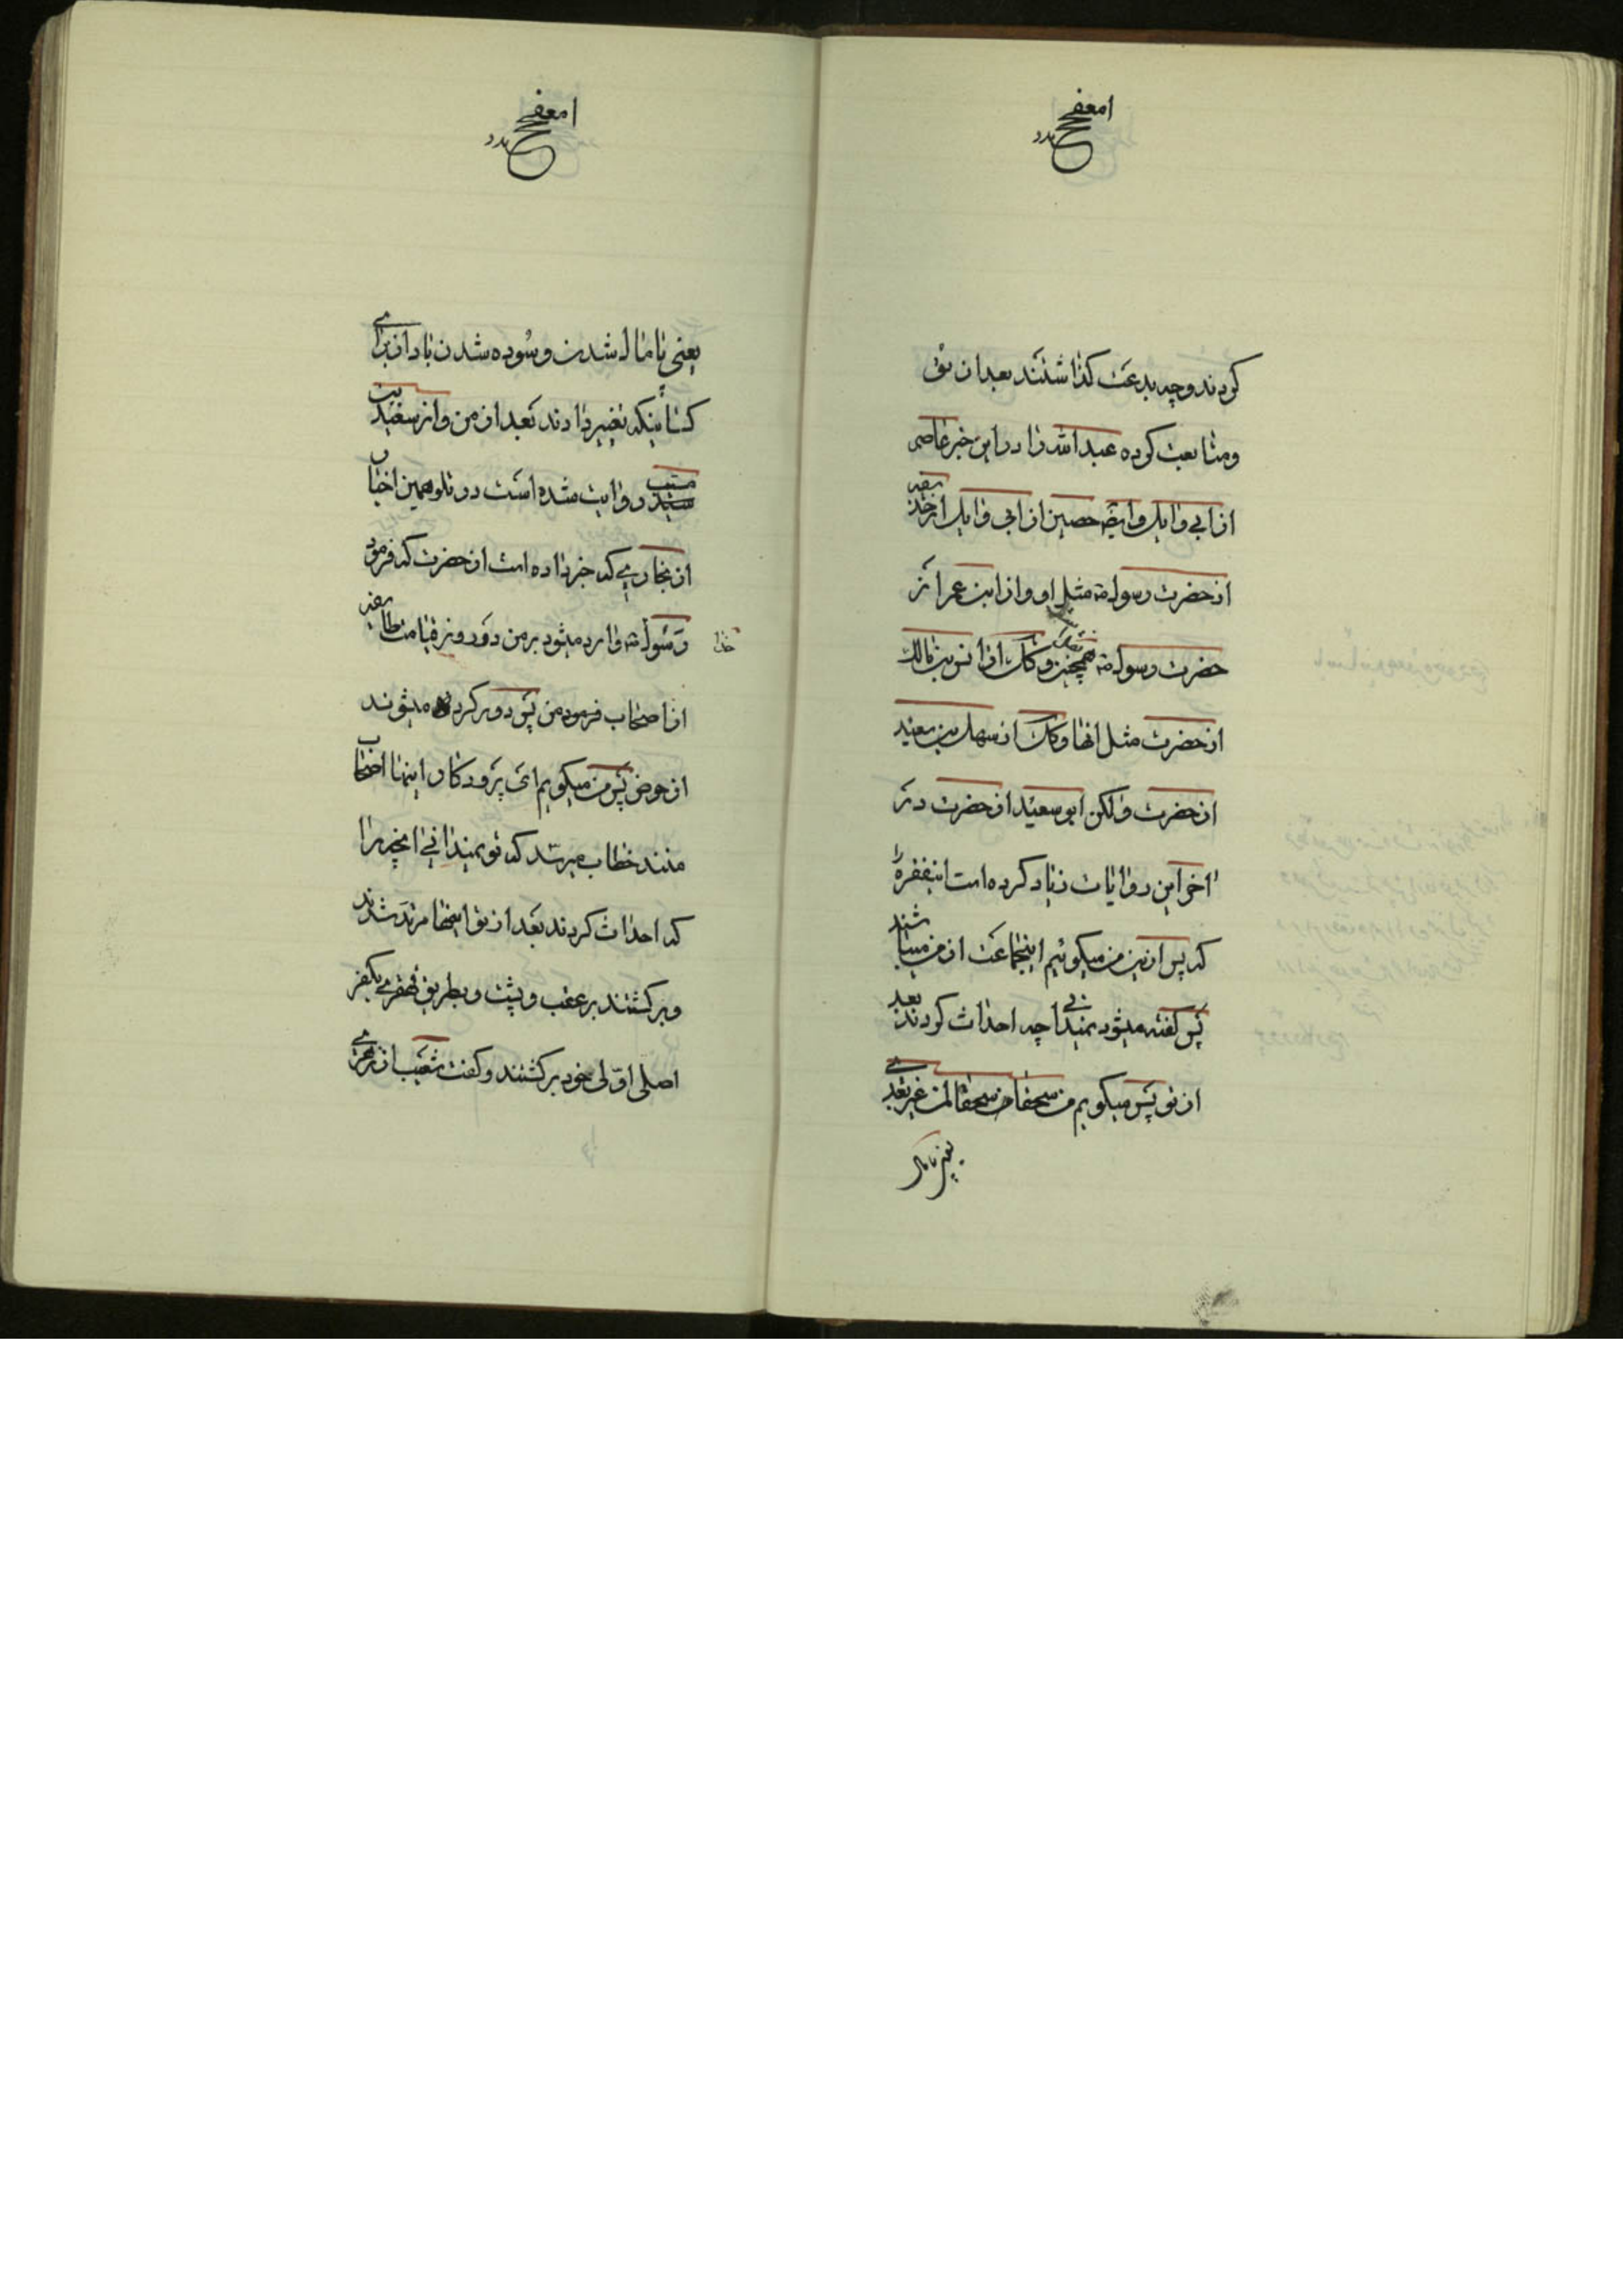 کردند و چه بدعت گذاشتند بعد از تو
و متابعت کرده عبدالله را در این خبر عاصم
از ابی وایل و ایضا حصین از ابی وایل از حذیفه
از حضرت رسول مثل او و از ابن عمر از
حضرت رسول همچنین و از انس بن مالک
از حضرت مثل انها و از سهل بن سعید
از حضرت ولکن ابو سعید از حضرت در
اخر این روایات زیاد کرده است اینفقره را
که پس از این من میگویم اینجماعت از من میباشند
پس گفته میشود نمیدانی چه احداث کردند بعد
از تو پس میگویم من سحقا سحقا لمن غیر بعدی
یعنی پامال
یعنی پامال شدن و سوده شدن باد از برای
کسانیکه تغییر دادند بعد از من و از سعید بن
مسیب روایت شده است در تلو همین اخبار
از بخاری که خبر داده است از حضرت که فرمود
رسول خدا وارد میشود بر من در روز قیامت طایفه
از اصحاب فرمود من پس دور کرده میشوند
از حوض پس من میگویم ای پروردگار اینها اصحاب
منند خطاب میرسد که تو نمیدانی انچه را
که احداث کردند بعد از تو اینها مرتد شدند
و برگشتند بر عقب و پشت و بطریق قهقری بکفر
اصلی اولی خود برگشتند و گفت شعیب از زهری